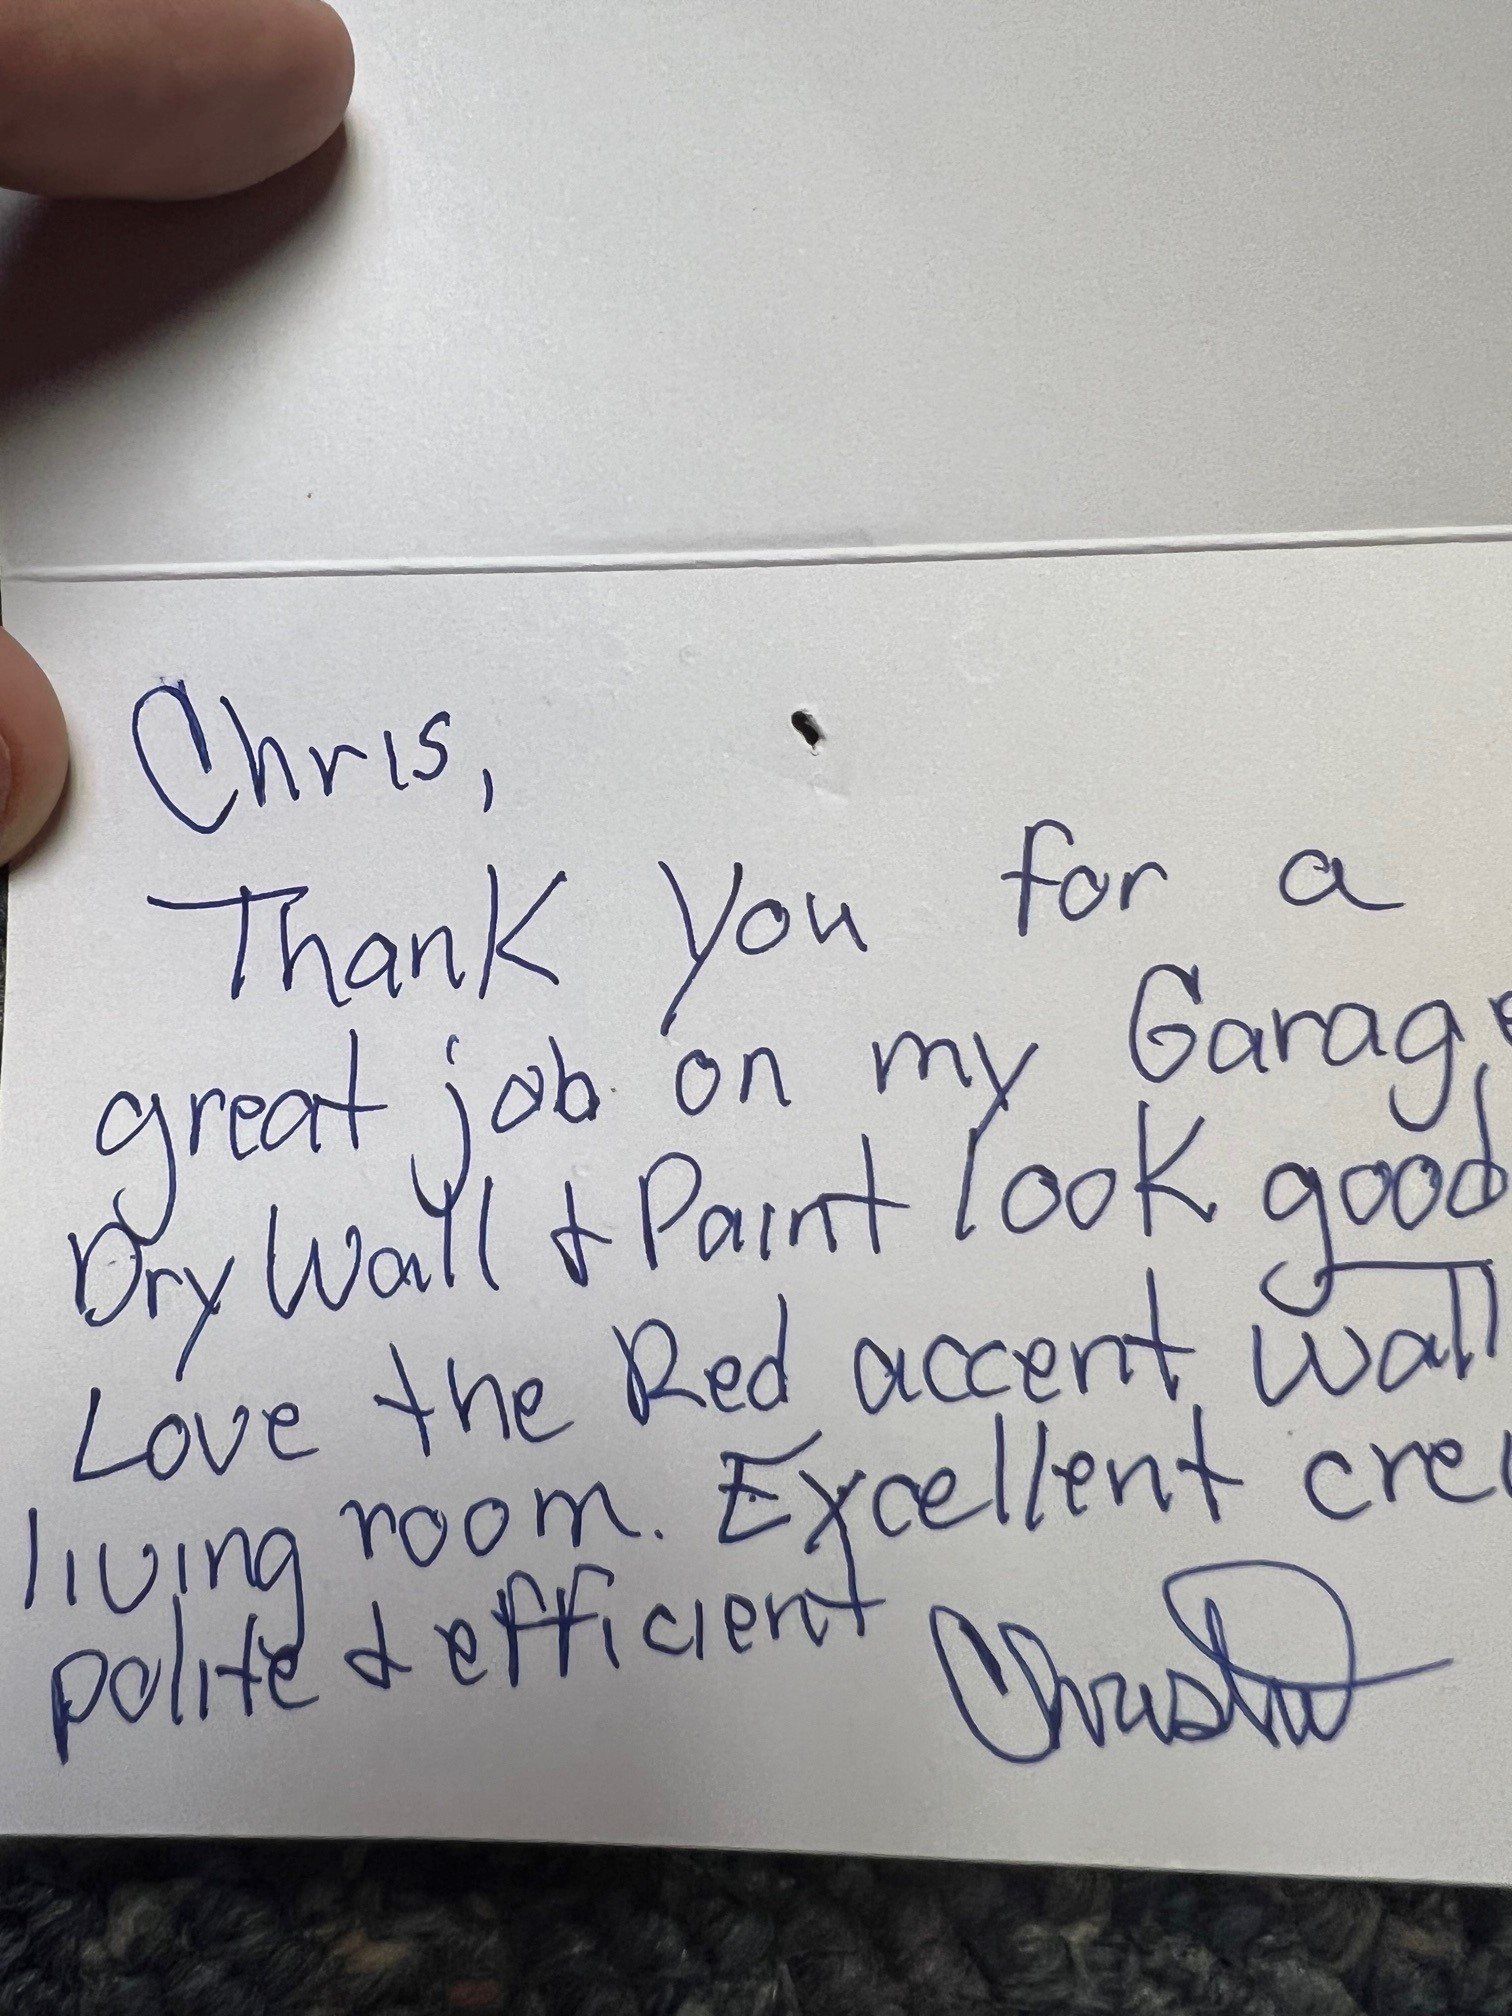 Chris,
Thank you for a
great job on my Garage
Dry Wall & Paint look good
Love the Red accent wall
living room. Excellent cre
polite & efficient